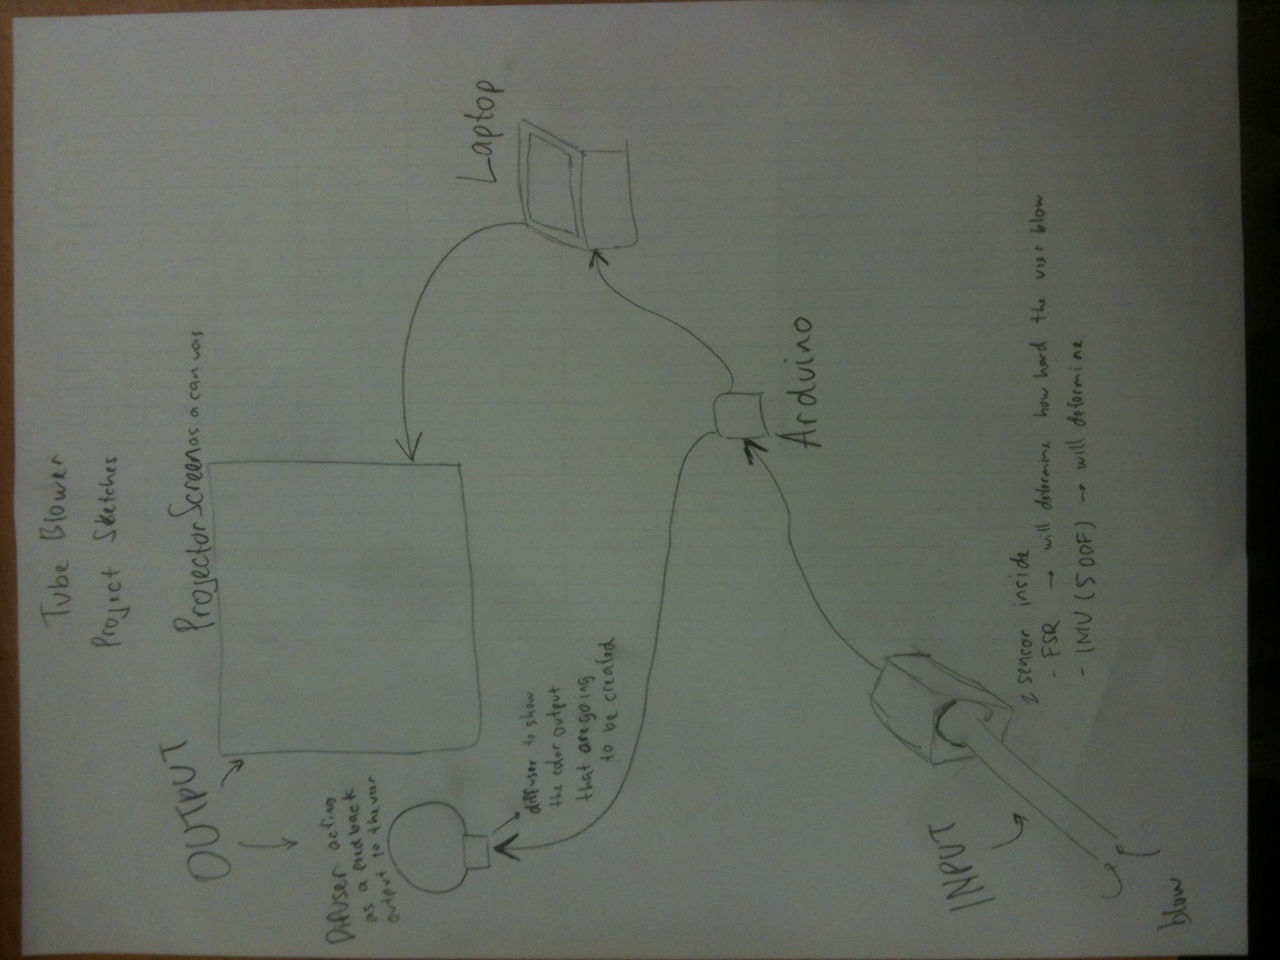 Tube Blower
Project Sketches
OUTPUT
Projector Screen as a canvas
Difuser acting
as a feedback
output to the user
diffuser to show
the color output
that are going
to be created
Laptop
Arduino
INPUT
2 sensor inside
- FSR → will determine how hard the user blow
- IMU (5DOF) → will determine
blow